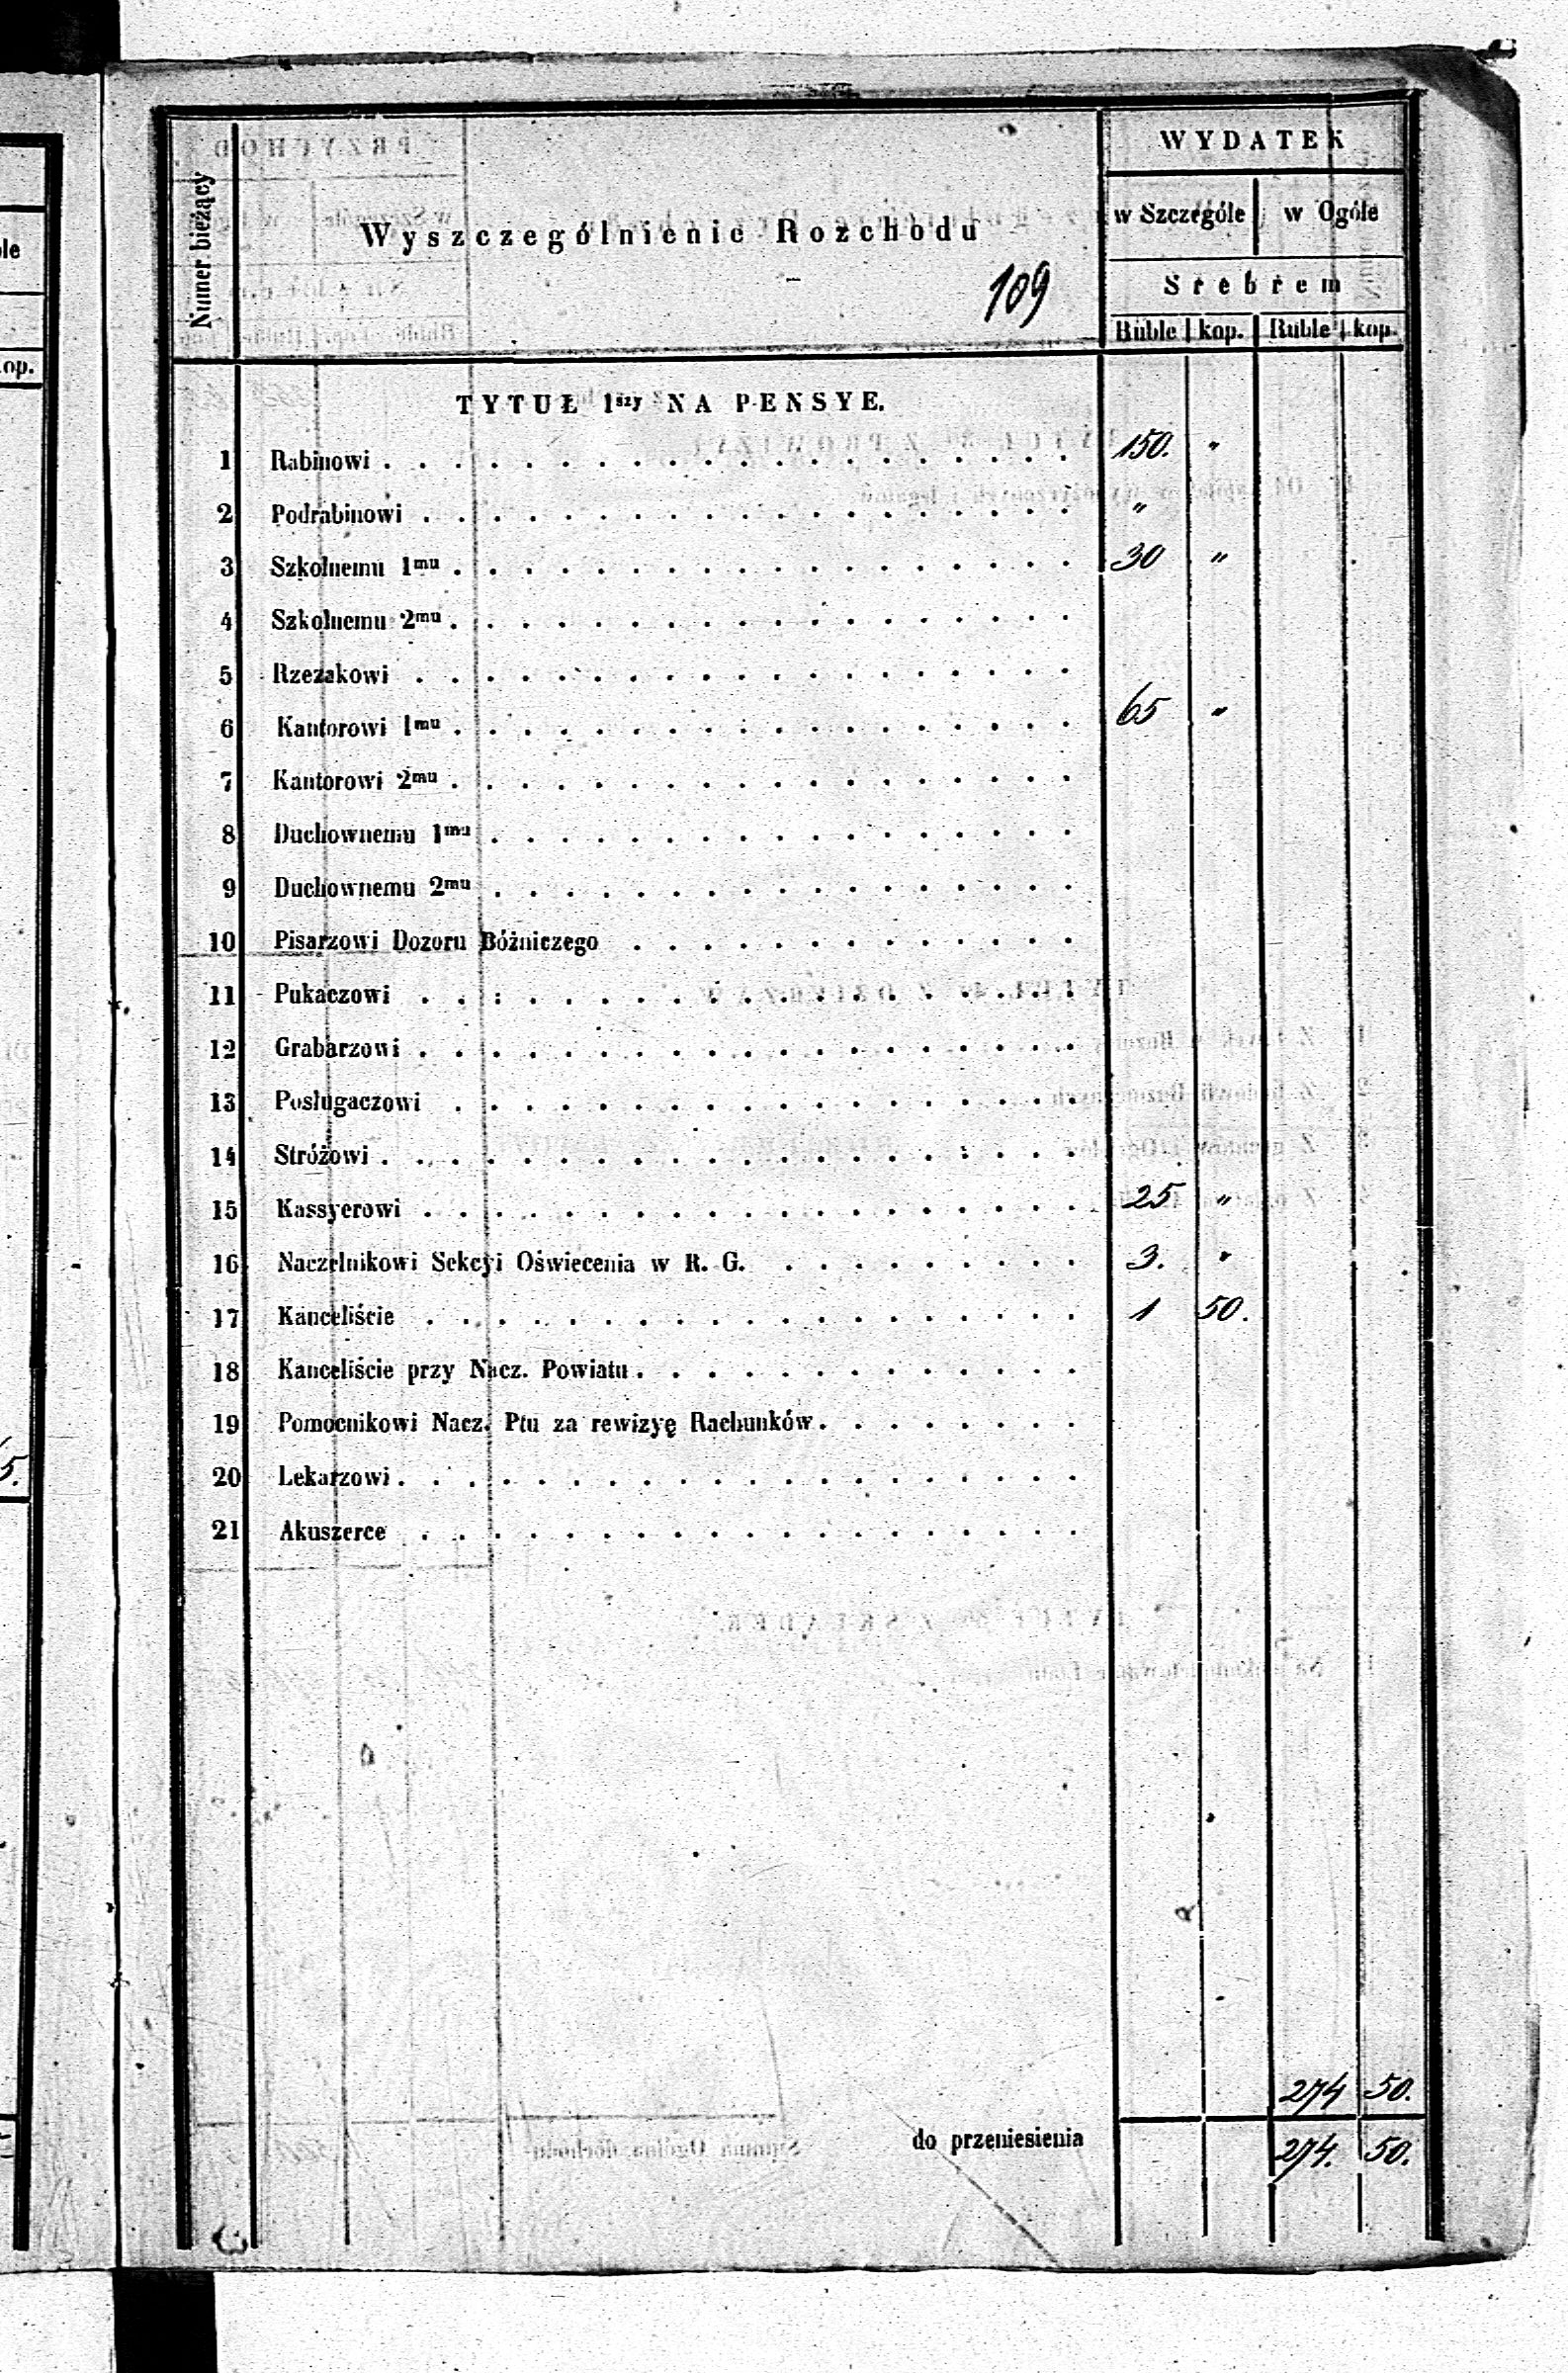 WYDATEK
Numer bieżący
Wyszczególnienie Rozchodu
w Szczególe w Ogóle
109
Srebrem
Ruble kop. Ruble kop.
TYTUŁ 1szy NA PENSYE.
1 Rabinowi . . . 150. "
2 Podrabinowi . . . "
3 Szkolnemu 1mu . . . 30 "
4 Szkolnemu 2mu . . .
5 Rzezakowi . . .
6 Kantorowi 1mu . . . 65 "
7 Kantorowi 2mu . . .
8 Duchownemu 1mu . . .
9 Duchownemu 2mu . . .
10 Pisarzowi Dozoru Bóżniczego . . .
11 Pukaczowi . . .
12 Grabarzowi . . .
13 Posługaczowi . . .
14 Stróżowi . . .
15 Kassyerowi . . . 25 "
16 Naczelnikowi Sekcyi Oświecenia w R. G. . . . 3. "
17 Kanceliście . . . 1 50.
18 Kanceliście przy Nacz. Powiatu . . .
19 Pomocnikowi Nacz. Ptu za rewizyę Rachunków . . .
20 Lekarzowi . . .
21 Akuszerce . . .
274 50.
do przeniesienia 274. 50.